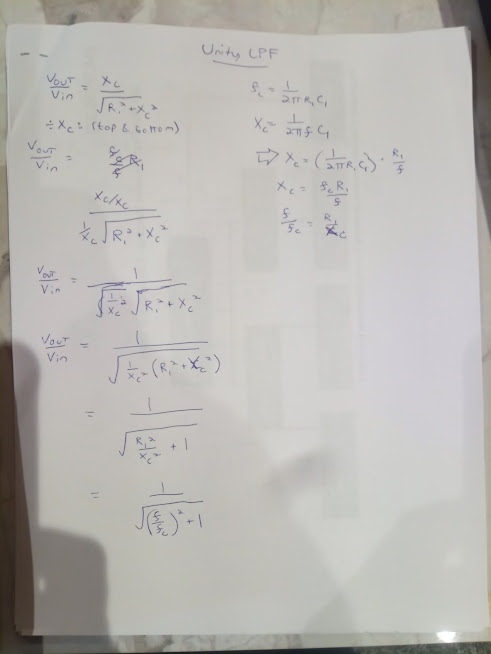 Unity LPF
Vout/Vin = Xc/√(R₁² + Xc²)
÷ Xc : (top & bottom)
Vout/Vin =
Xc/Xc / (1/Xc √(R₁² + Xc²))
Vout/Vin = 1/(√(1/Xc²) √(R₁² + Xc²))
Vout/Vin = 1/√(1/Xc² (R₁² + Xc²))
= 1/√(R₁²/Xc² + 1)
= 1/√((f/fc)² + 1)
fc = 1/(2πR₁C₁)
Xc = 1/(2πfC₁)
⇒ Xc = (1/(2πR₁C₁)) · R₁/f
Xc = fcR₁/f
f/fc = R₁/Xc